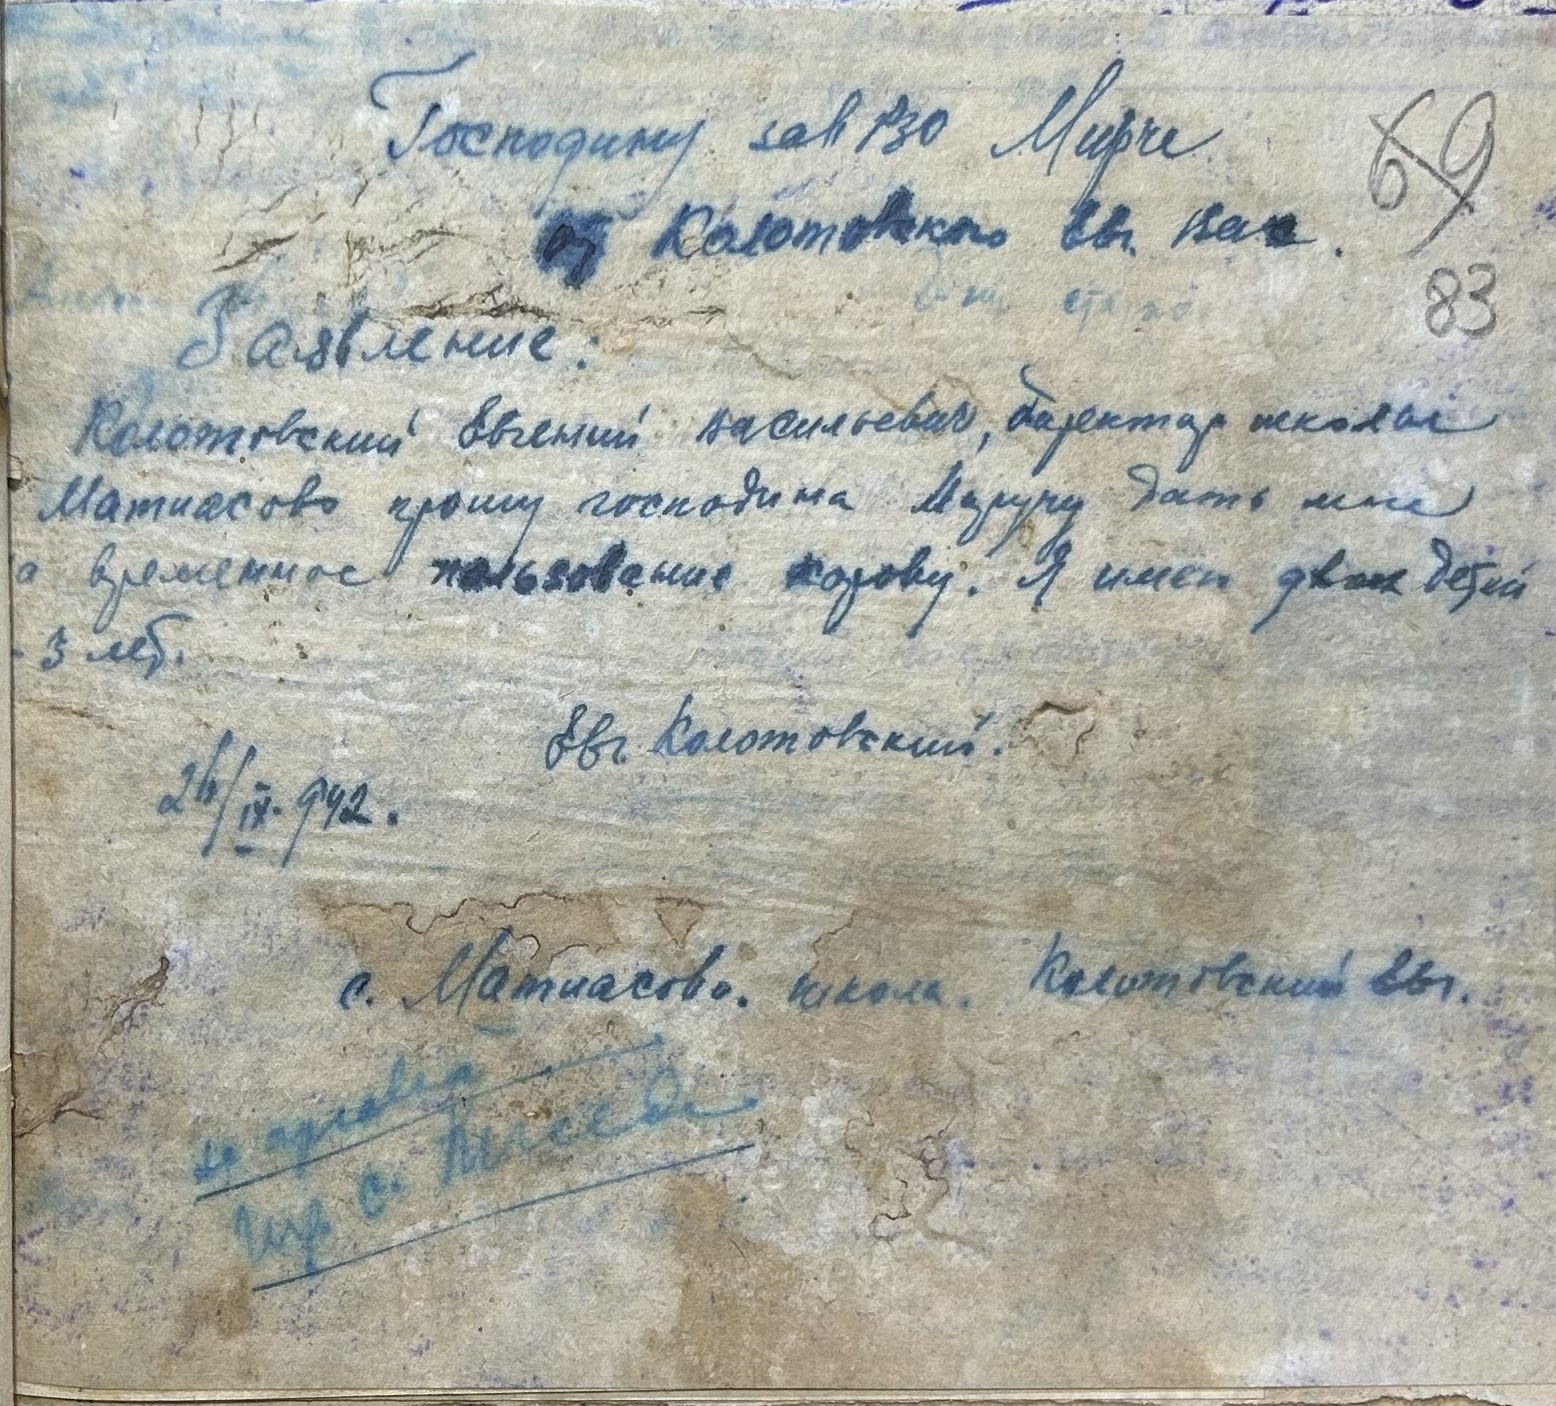 Господину зав РЗО Мирче
69
от Колотовского Евг. Вас.
83
Заявление:
Колотовский Евгений Васильевич, директор школы
Матиасово прошу господина дать мне
а временное пользование корову. Я имею двоих детей
- 3 лет.
Евг. Колотовский.
26/IX. 942.
с. Матиасово. школа. Колотовский Евг.
с.